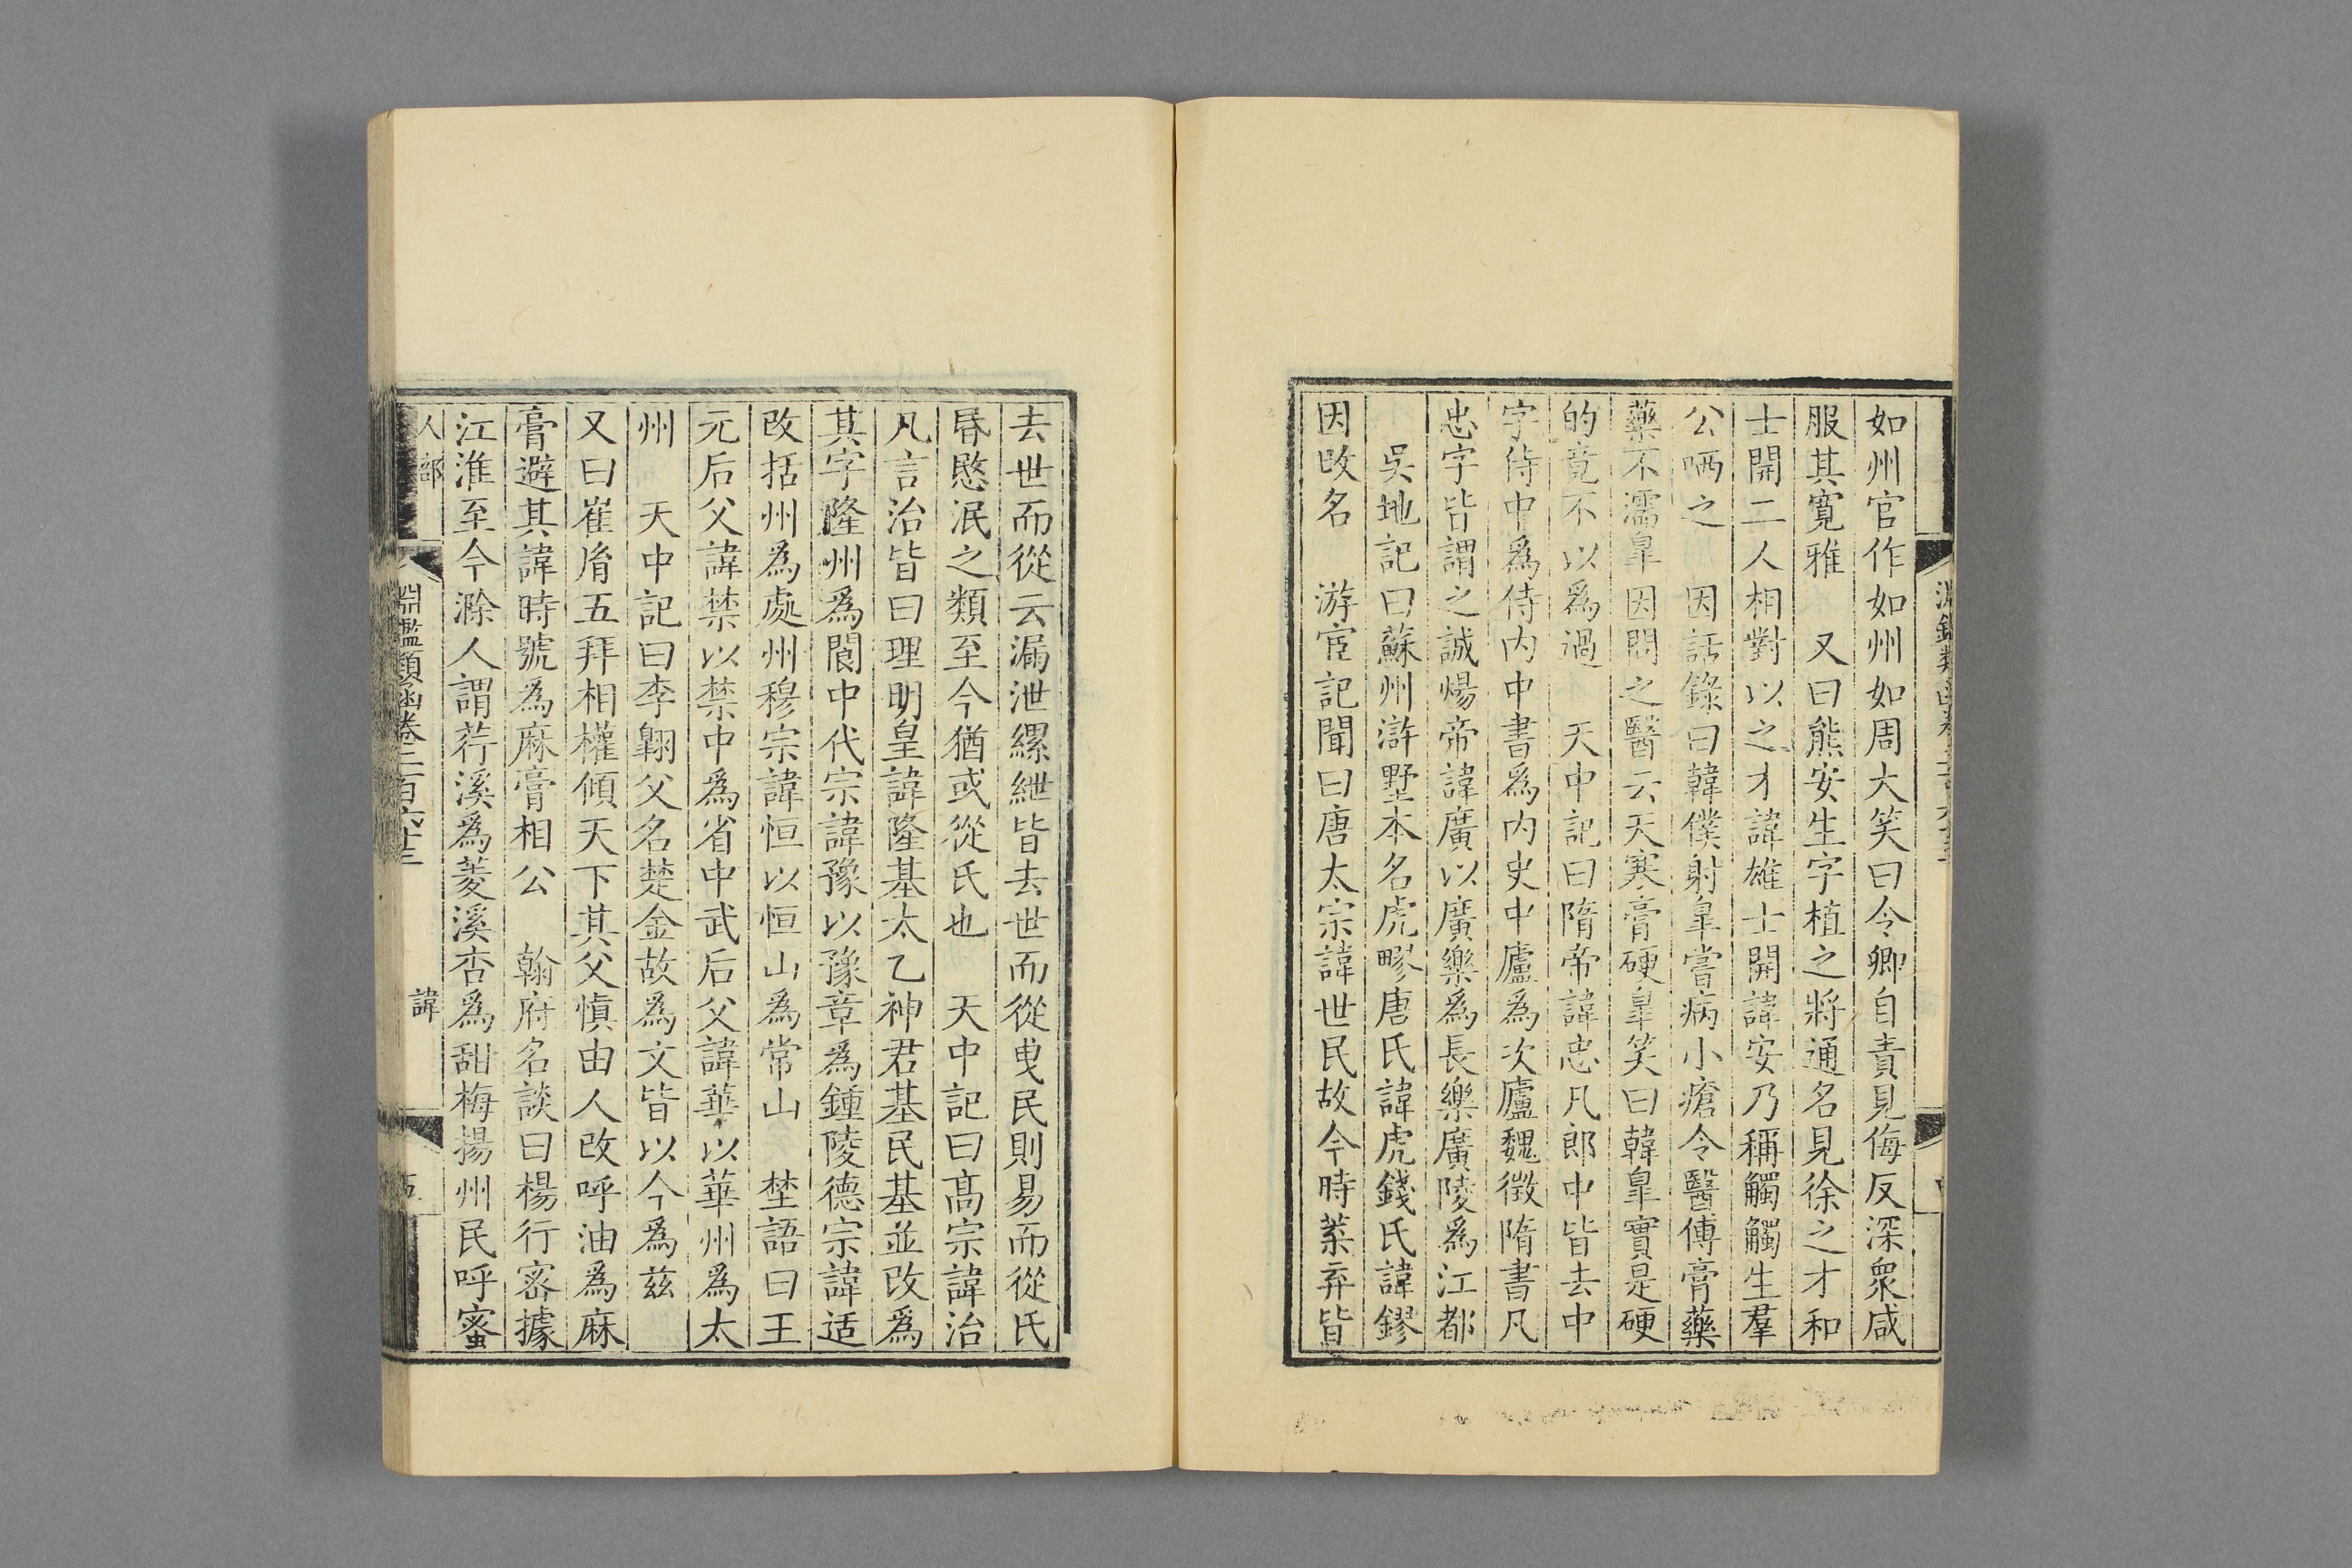 如州官作如州如周大笑曰令卿自責見侮反深衆咸
服其寬雅　又曰熊安生字植之將通名見徐之才和
士開二人相對以之才諱雄士開諱安乃稱觸觸生羣
公哂之　因話錄曰韓僕射臯嘗病小瘡令醫傅膏藥
藥不濡臯因問之醫云天寒膏硬臯笑曰韓臯實是硬
的竟不以爲過　天中記曰隋帝諱忠凡郎中皆去中
字侍中爲侍内中書爲内史中廬爲次廬魏徵隋書凡
忠字皆謂之誠煬帝諱廣以廣樂爲長樂廣陵爲江都
吳地記曰蘇州滸墅本名虎疁唐氏諱虎錢氏諱鏐
因改名　游宦記聞曰唐太宗諱世民故今時葉弃皆
去世而從云漏泄縲紲皆去世而從曳民則易而從氏
昬愍泯之類至今猶或從氏也　天中記曰髙宗諱治
凡言治皆曰理明皇諱隆基太乙神君基民基並改爲
其字隆州爲閬中代宗諱豫以豫章爲鍾陵德宗諱适
改括州爲處州穆宗諱恒以恒山爲常山　埜語曰王
元后父諱禁以禁中爲省中武后父諱華以華州爲太
州　天中記曰李翺父名楚金故爲文皆以今爲兹
又曰崔胤五拜相權傾天下其父慎由人改呼油爲麻
膏避其諱時號爲麻膏相公　翰府名談曰楊行宻據
江淮至今滁人謂荇溪爲菱溪杏爲甜梅揚州民呼蜜
人部
淵鑑類函卷二百六十三
諱
五